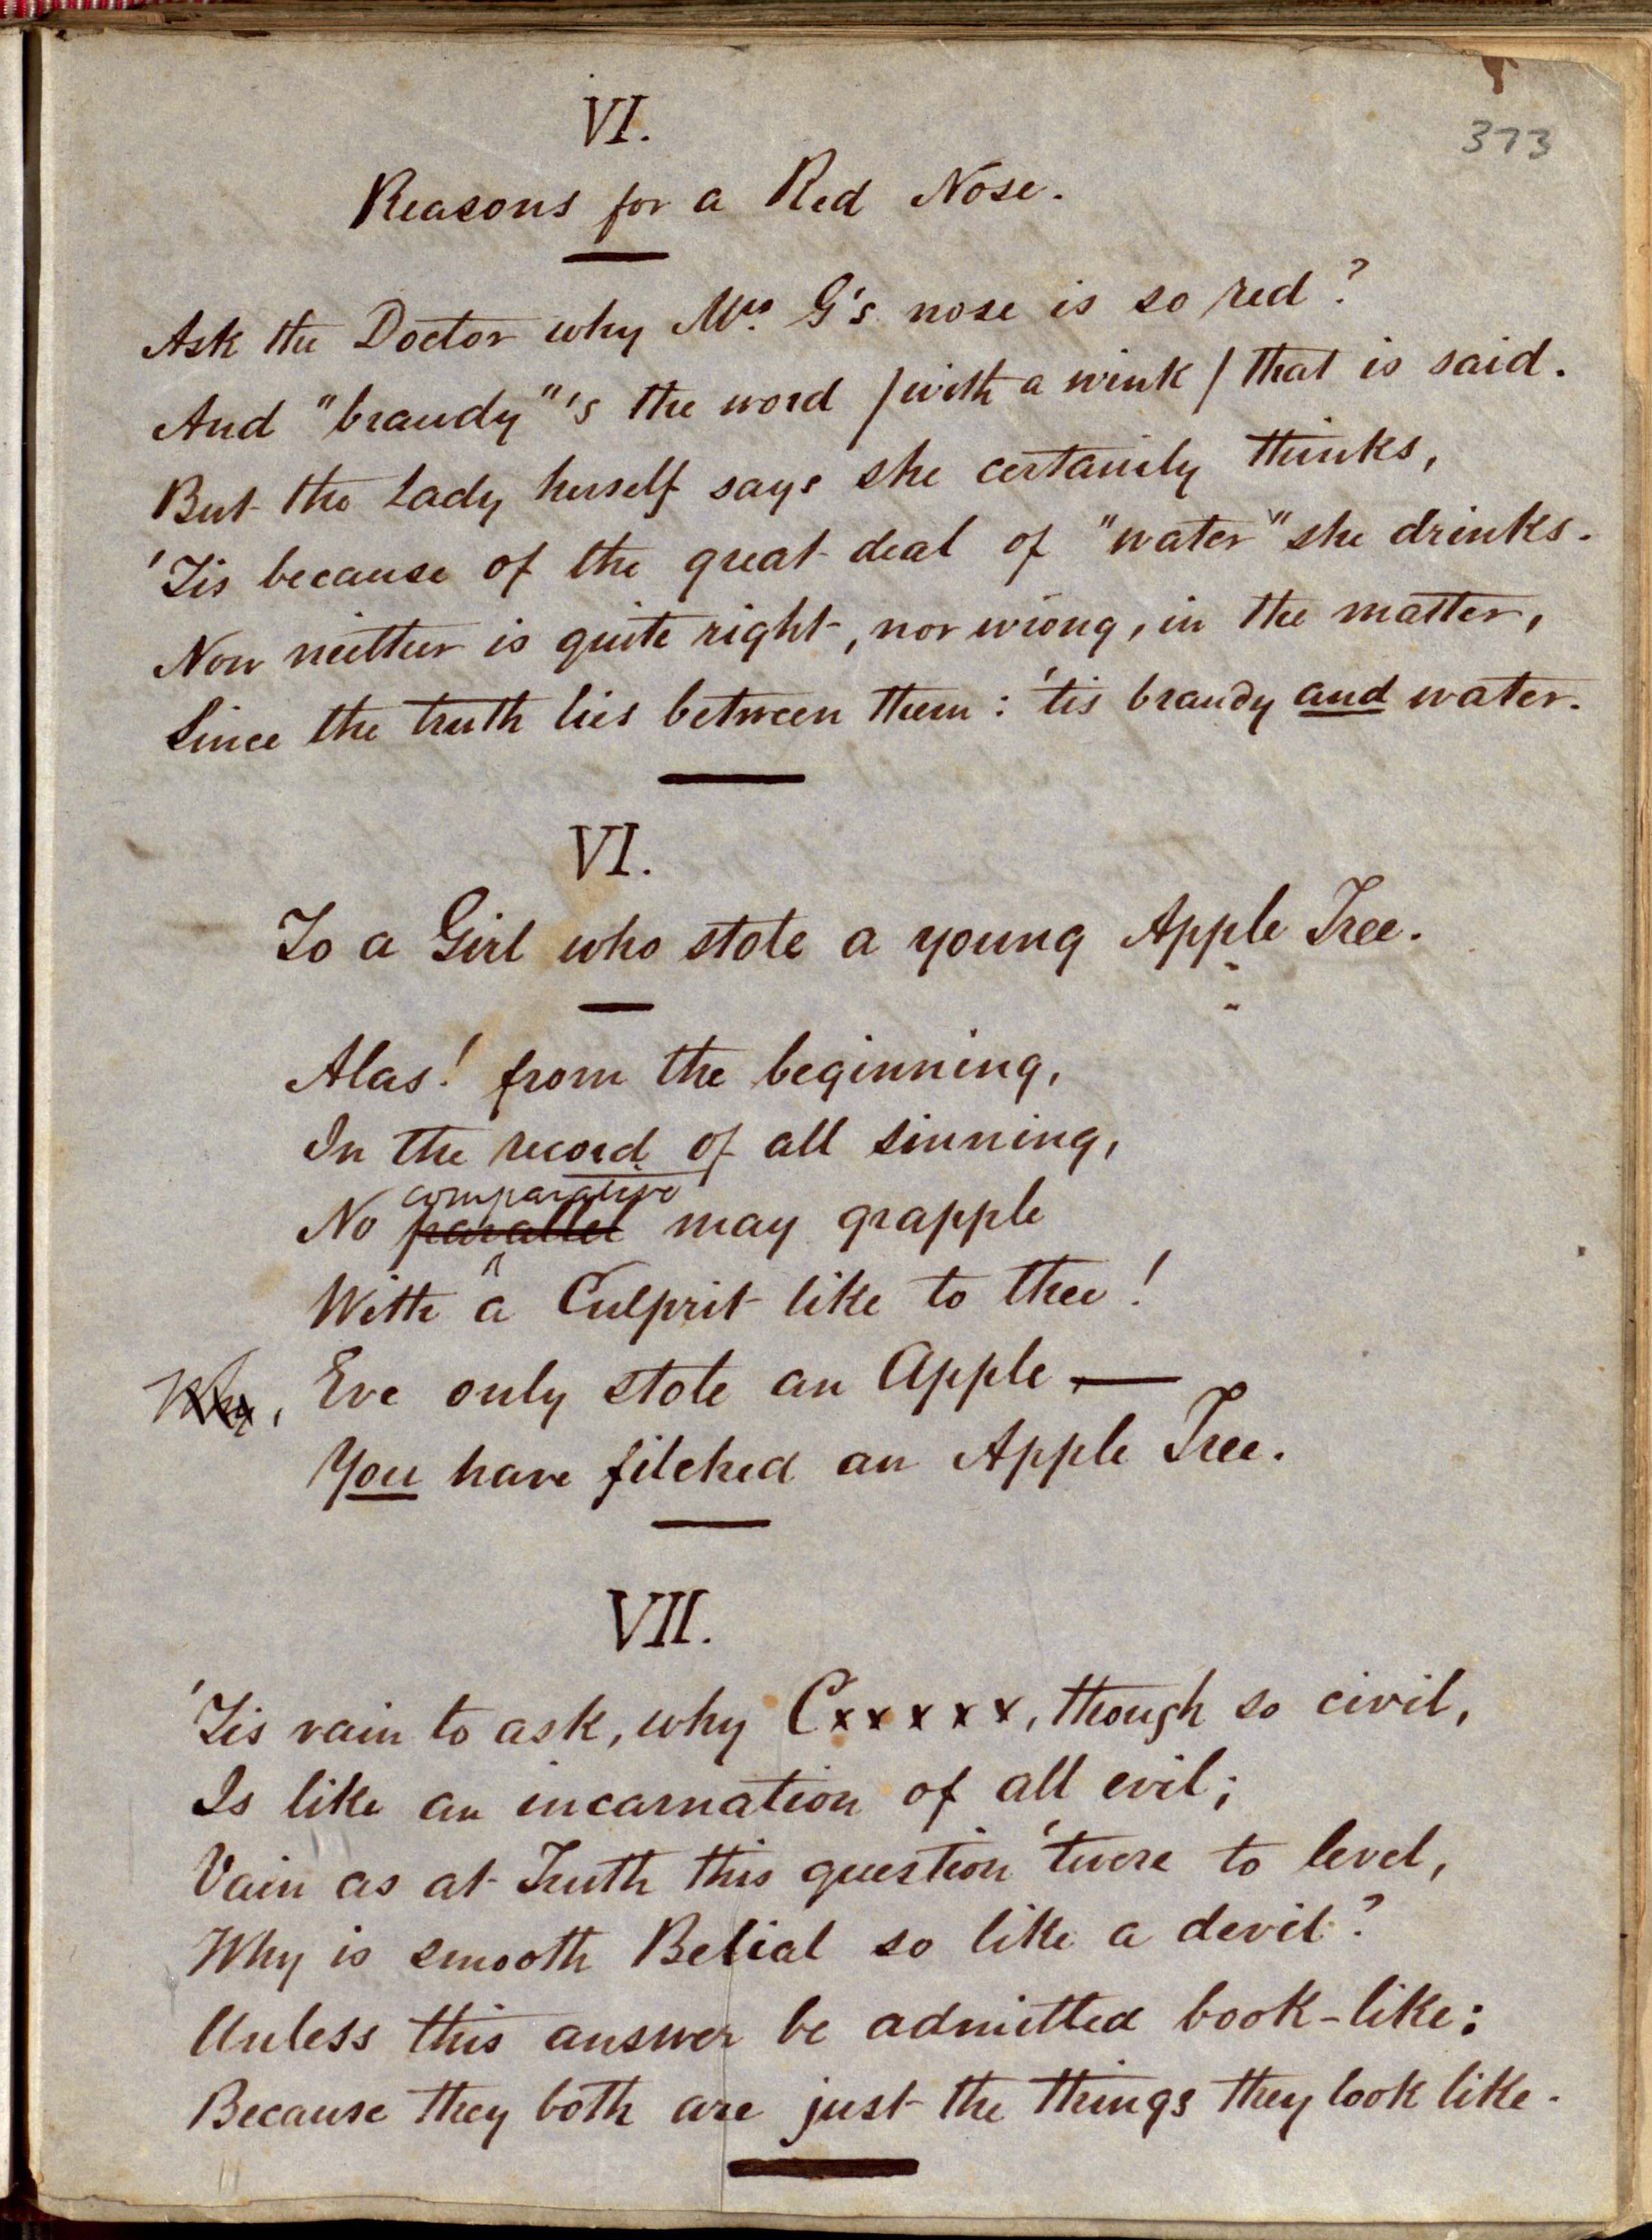 373
VI.
Reasons for a Red Nose.
Ask the Doctor why Mrs. G's nose is so red?
And "brandy"'s the word /with a wink/ that is said.
But the Lady herself says she certainly thinks,
'Tis because of the great deal of "water" she drinks.
Now neither is quite right, nor wrong, in the matter,
Since the truth lies between them: 'tis brandy and water.
VI.
To a Girl who stole a young Apple Tree.
Alas! from the beginning,
In the record of all sinning,
comparative
No parallel may grapple
With a Culprit like to thee!
Why, Eve only stole an Apple —
You have filched an Apple Tree.
VII.
'Tis vain to ask, why Cxxxxx, though so civil,
Is like an incarnation of all evil;
Vain as at Truth this question 'twere to level,
Why is smooth Belial so like a devil?
Unless this answer be admitted book-like:
Because they both are just the things they look like.